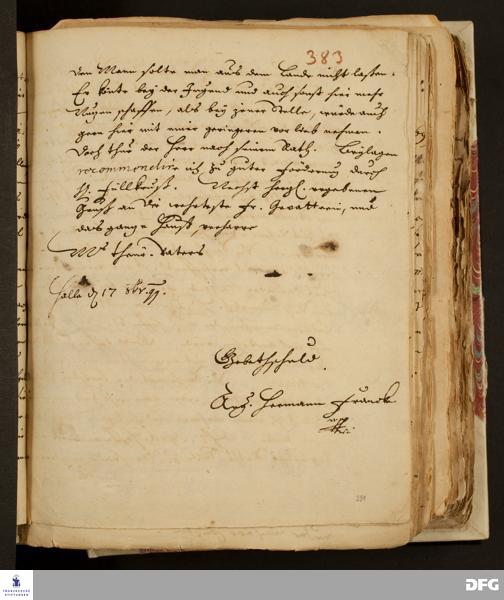 383
den Mann solte man aus dem Lande nicht lassen.
Er könte bey der Jugend und auch sonst hier mehr
Nutzen schaffen, als bey jener Stelle, würde auch
gern hier mit einer geringeren vor lieb nehmen.
Doch thue der Herr nach seinem Rath. Beylagen
recommendire ich zu guter Förderung durch
H. Füllkrust. Nechst hertzl. ergebenen
Gruß an die wertheste Fr. Gevatterin, und
das gantze Hauß, verharre
Ms theur. Vaters
Halle d 17 8br. 99.
Gebethschuld.
Aug. Hermann Francke
mpp
291
FRANCKESCHE STIFTUNGEN
DFG